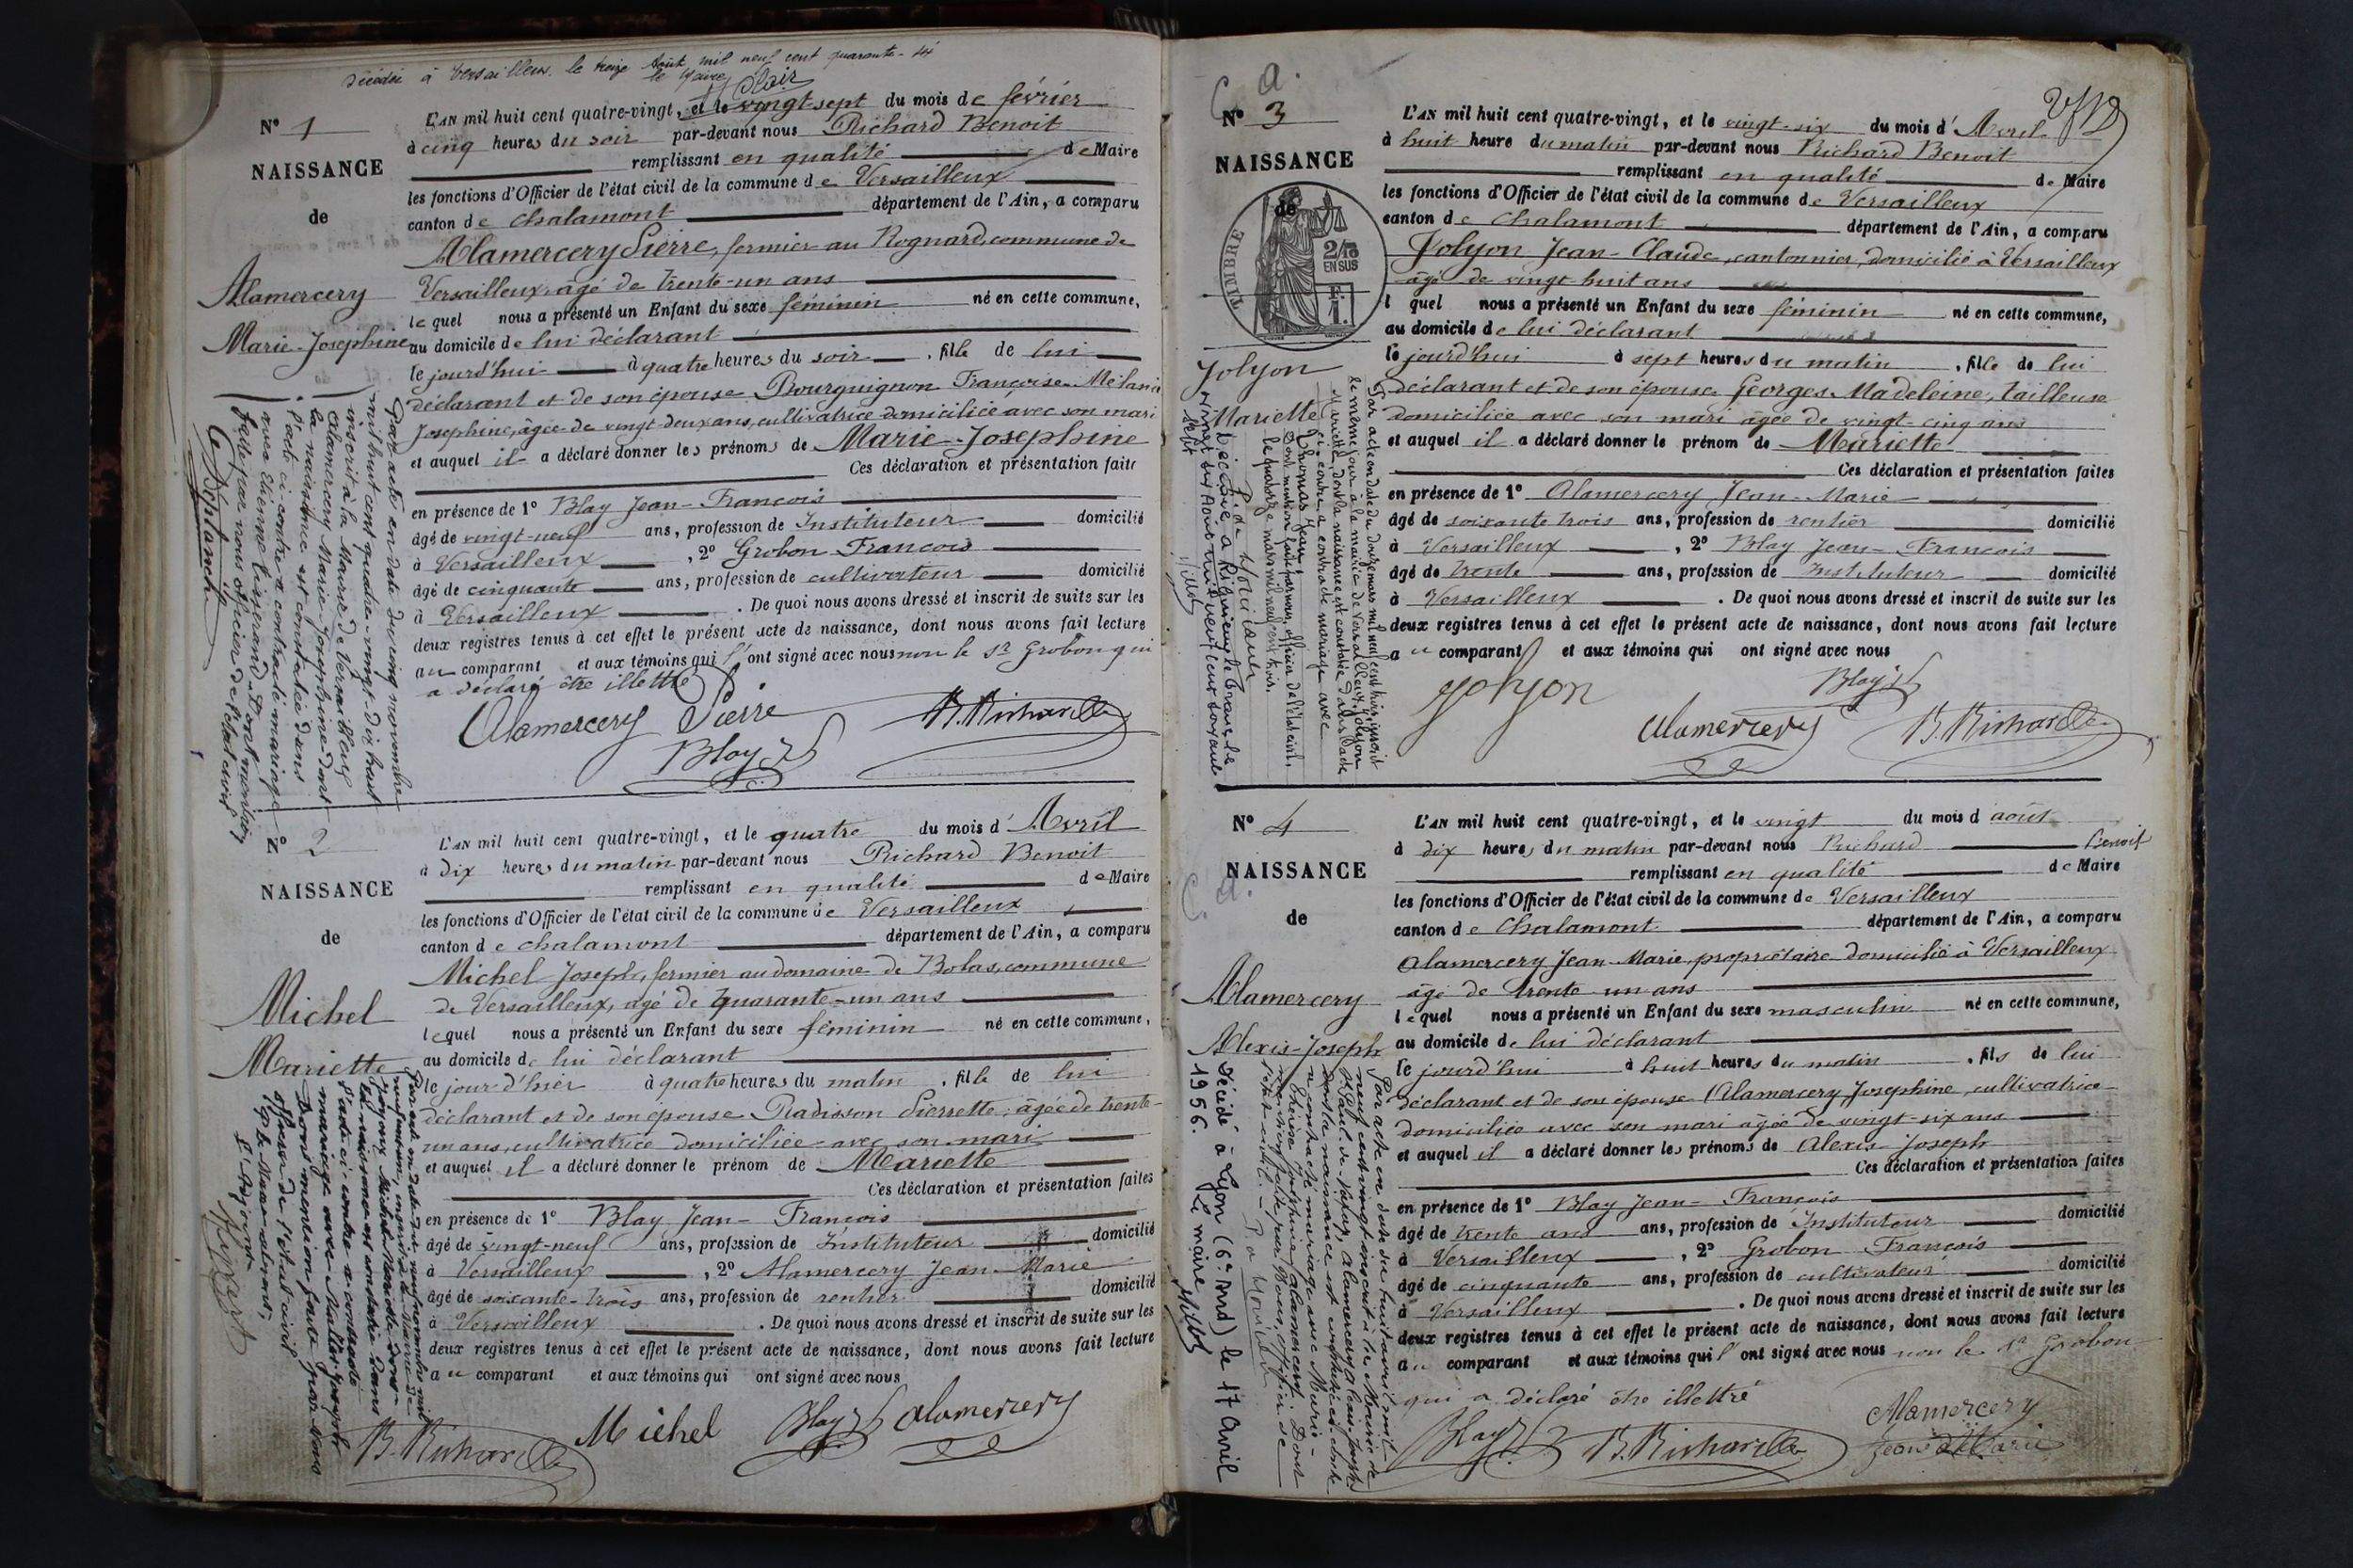 Décédée à Versailleux le treize Août mil neuf cent quarante-six
le Maire
N° 1
NAISSANCE
de
Alamercery
Marie-Josephine
L'AN mil huit cent quatre-vingt, et le vingt sept du mois de février
à cinq heures du soir par-devant nous Richard Benoit
remplissant en qualité de Maire
les fonctions d'Officier de l'état civil de la commune de Versailleux
canton de Chalamont département de l'Ain, a comparu
Alamercery Pierre, fermier au Rognard, commune de
Versailleux, agé de trente-un ans
lequel nous a présenté un Enfant du sexe féminin né en cette commune,
au domicile de lui déclarant
le jourd'hui à quatre heures du soir, fille de lui
déclarant et de son épouse Bourguignon Françoise Mélanie
Josephine, âgée de vingt deux ans, cultivatrice domiciliée avec son mari
et auquel il a déclaré donner les prénoms de Marie-Josephine
Ces déclaration et présentation faites
en présence de 1° Blay Jean-Francois
âgé de vingt-neuf ans, profession de Instituteur domicilié
à Versailleux, 2° Grobon Francois
âgé de cinquante ans, profession de cultivateur domicilié
à Versailleux. De quoi nous avons dressé et inscrit de suite sur les
deux registres tenus à cet effet le présent acte de naissance, dont nous avons fait lecture
au comparant et aux témoins qui l'ont signé avec nous non le Sr Grobon qui
a déclaré être illettré
Alamercery Pierre
B. Richard
Blay
Par acte en date du cinq novembre
mil huit cent quatre-vingt-dix huit
inscrit à la Mairie de Versailleux
Alamercery Marie-Josephine dont
la naissance est constatée dans
l'acte ci-contre a contracté mariage
avec Etienne Dont mention
faite par nous officier de l'état civil
N° 2
NAISSANCE
de
Michel
Mariette
L'AN mil huit cent quatre-vingt, et le quatre du mois d'Avril
à dix heures du matin par-devant nous Richard Benoit
remplissant en qualité de Maire
les fonctions d'Officier de l'état civil de la commune de Versailleux
canton de Chalamont département de l'Ain, a comparu
Michel Joseph, fermier au domaine de Bolas, commune
de Versailleux, agé de quarante-un ans
lequel nous a présenté un Enfant du sexe féminin né en cette commune,
au domicile de lui déclarant
le jour d'hier à quatre heures du matin, fille de lui
déclarant et de son épouse Radisson Pierrette, âgée de trente-
un ans, cultivatrice domiciliée avec son mari
et auquel il a déclaré donner le prénom de Mariette
Ces déclaration et présentation faites
en présence de 1° Blay Jean-Francois
âgé de vingt-neuf ans, profession de Instituteur domicilié
à Versailleux, 2° Alamercery Jean-Marie
âgé de soixante-trois ans, profession de rentier domicilié
à Versailleux. De quoi nous avons dressé et inscrit de suite sur les
deux registres tenus à cet effet le présent acte de naissance, dont nous avons fait lecture
au comparant et aux témoins qui ont signé avec nous
B. Richard
Michel
Blay
Alamercery
la naissance est constatée dans
l'acte ci-contre a contracté
mariage avec Joseph
Dont mention faite par Nous
officier de l'état civil
L'Adjoint
C. a.
N° 3
NAISSANCE
de
TIMBRE
2/10
EN SUS
Jolyon
Mariette
L'AN mil huit cent quatre-vingt, et le vingt-six du mois d'Avril
à huit heure du matin par-devant nous Richard Benoit
remplissant en qualité de Maire
les fonctions d'Officier de l'état civil de la commune de Versailleux
canton de Chalamont département de l'Ain, a comparu
Jolyon Jean-Claude, cantonnier, domicilié à Versailleux
âgé de vingt-huit ans
l quel nous a présenté un Enfant du sexe féminin né en cette commune,
au domicile de lui déclarant
le jourd'hui à sept heures du matin, fille de lui
déclarant et de son épouse Georges Madeleine, tailleuse
domiciliée avec son mari âgée de vingt-cinq ans
et auquel il a déclaré donner le prénom de Mariette
Ces déclaration et présentation faites
en présence de 1° Alamercery Jean-Marie
âgé de soixante trois ans, profession de rentier domicilié
à Versailleux, 2° Blay Jean-Francois
âgé de trente ans, profession de Instituteur domicilié
à Versailleux. De quoi nous avons dressé et inscrit de suite sur les
deux registres tenus à cet effet le présent acte de naissance, dont nous avons fait lecture
au comparant et aux témoins qui ont signé avec nous
Jolyon
Blay
Alamercery
B. Richard
Par acte en date du douze mars mil neuf cent trois, inscrit
le même jour à la mairie de Versailleux, Jolyon
Mariette, dont la naissance est constatée dans l'acte
ci-contre a contracté mariage avec
Thomas Jean.
Dont mention faite par nous, officier de l'état civil,
le quatorze mars mil neuf cent trois.
N° 4
NAISSANCE
C. a.
de
Alamercery
Alexis-Joseph
L'AN mil huit cent quatre-vingt, et le vingt du mois d août
à dix heures du matin par-devant nous Richard Benoit
remplissant en qualité de Maire
les fonctions d'Officier de l'état civil de la commune de Versailleux
canton de Chalamont département de l'Ain, a comparu
Alamercery Jean-Marie propriétaire domicilié à Versailleux
âgé de trente un ans
lequel nous a présenté un Enfant du sexe masculin né en cette commune,
au domicile de lui déclarant
le jourd'hui à huit heures du matin, fils de lui
déclarant et de son épouse Alamercery Josephine, cultivatrice
domiciliée avec son mari âgée de vingt-six ans
et auquel il a déclaré donner les prénoms de Alexis Joseph
Ces déclaration et présentation faites
en présence de 1° Blay Jean-François
âgé de trente ans ans, profession de Instituteur domicilié
à Versailleux, 2° Grobon Francois
âgé de cinquante ans, profession de cultivateur domicilié
à Versailleux. De quoi nous avons dressé et inscrit de suite sur les
deux registres tenus à cet effet le présent acte de naissance, dont nous avons fait lecture
au comparant et aux témoins qui l'ont signé avec nous non le Sr Grobon
qui a déclaré être illettré
Blay
B. Richard
Alamercery
Jean Marie
Par acte en date du huit avril mil
neuf cent vingt inscrit à la Mairie de
St Paul-de-Varax, Alamercery Alexis-Joseph
dont la naissance est constatée ci-contre
a contracté mariage avec
Josephine Alamercery. Dont
mention faite par Nous, officier de
l'état-civil.
Décédé à Lyon (6e Arrd) le 17 Avril
1956. Le maire